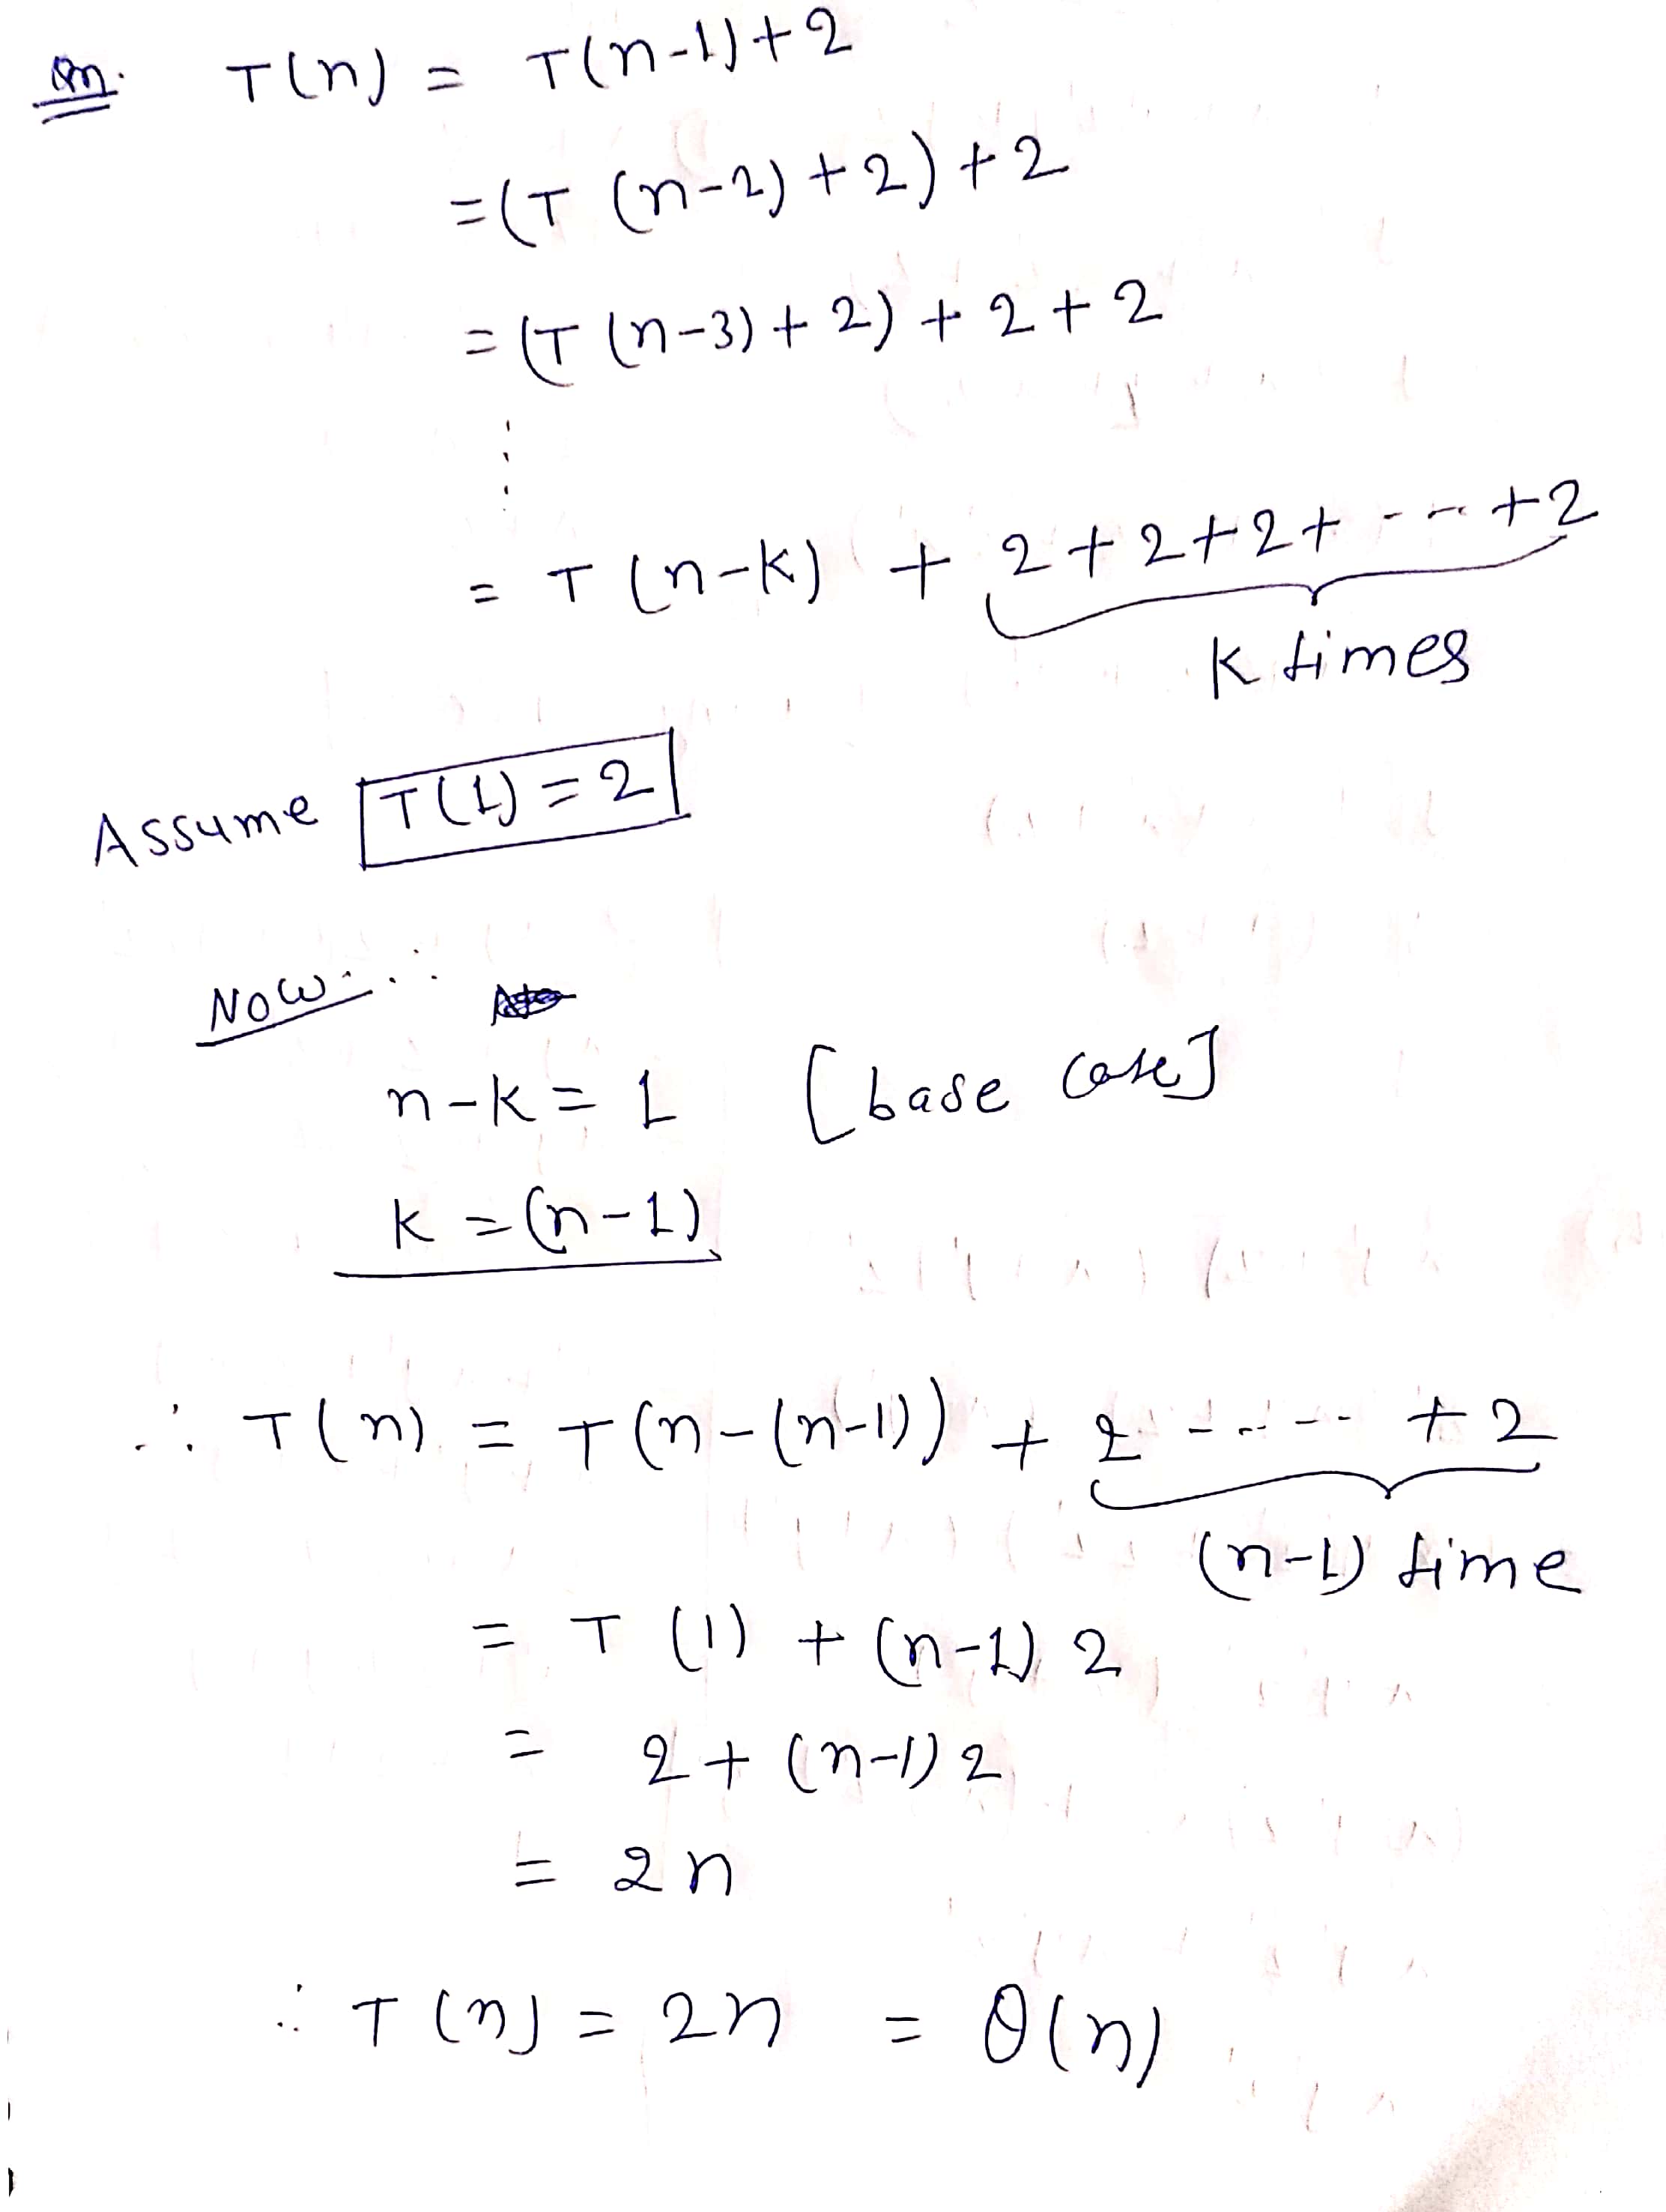 T(n) = T(n-1)+2
=(T (n-2)+2)+2
=(T(n-3)+2)+2+2
⋮
= T(n-k) + 2+2+2+ ---+2
k times
Assume T(1)=2
Now:-
n-k=1 [base case]
k=(n-1)
∴ T(n) = T(n-(n-1)) + 2 ----- +2
(n-1) time
= T(1) + (n-1) 2
= 2+(n-1)2
= 2n
∴ T(n) = 2n = θ(n)